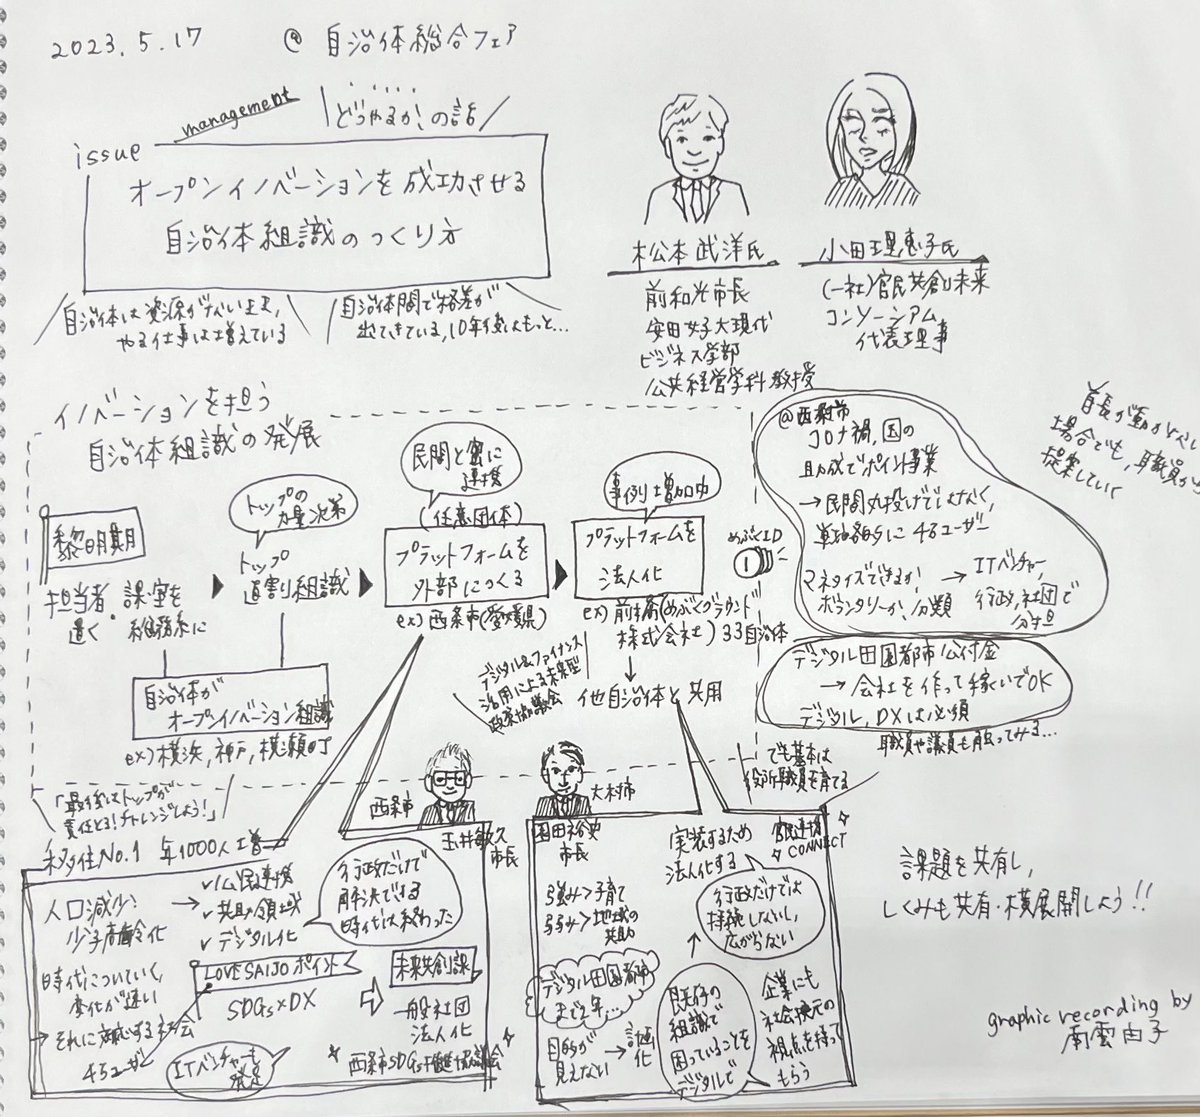 2023.5.17 @ 自治体総合フェア
management
どうやるか?の話
issue
オープンイノベーションを成功させる
自治体組織のつくり方
自治体は資源がない上に、
やる仕事は増えている
自治体間で格差が
出てきている、10年後はもっと…
松本武洋氏
前和光市長
安田女子大現代
ビジネス学部
公共経営学科教授
小田理恵子氏
(一社)官民共創未来
コンソーシアム
代表理事
イノベーションを担う
自治体組織の発展
黎明期
担当者・課室を
置く・総務系に
トップの
力量次第
トップ
直割り組織
自治体が
オープンイノベーション組織
ex)横浜,神戸,横瀬町
民間と密に
連携
(任意団体)
プラットフォームを
外部につくる
ex)西条市(愛媛県)
事例は増加中
プラットフォームを
法人化
ex)前橋(めぶくグラウンド
株式会社)33自治体
めぶくID
他自治体と共用
デジタル&ファイナンス
活用による未来型
政策協議会
@西条市
コロナ禍,国の
助成でポイント事業
→民間丸投げではなく,
戦略的に 4万ユーザー
マネタイズできるか
ボランタリーか,分類
→ITベンチャー,
行政,社団で
分担
デジタル田園都市公付金
→会社を作って稼いでOK
デジタル,DXは必須
職員や議員も触ってみる…
首長が動かない
場合でも,職員が
提案していく
でも基本は
役所職員を育てる
「最後はトップが
責任とる!チャレンジしよう!」
西条市
玉井敏久
市長
移住No.1 年1000人増
人口減少,
少子高齢化
→✓公民連携
✓共助領域
✓デジタル化
行政だけで
解決できる
時代は終わった
時代についていく,
変化が速い
→それに対応する社会
LOVE SAIJO ポイント
SDGs×DX
4万ユーザー
ITベンチャーも
発足
未来共創課
一般社団
法人化
西条市SDGs推進協議会
大村市
園田裕史
市長
強み>子育て
弱み>地域の
共助
デジタル田園都市
まで2年…
目的が
見えない
→計画化
実装するため
法人化する
官民連携
CONNECT
行政だけでは
持続しないし,
広がらない
既存の
組織で
困っていることを
デジタルで
企業にも
社会換元の
視点を持って
もらう
課題を共有し,
しくみも共有・横展開しよう!!
graphic recording by
南雲由子